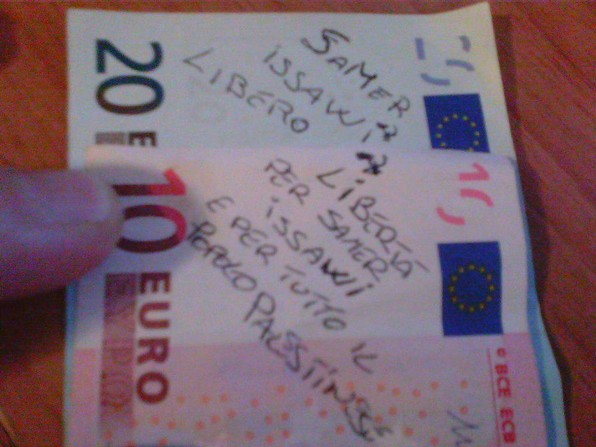 20 E
SAMER
ISSAWI
LIBERO
10 EURO
LIBERTÀ
PER SAMER
ISSAWI
E PER TUTTO IL
POPOLO PALESTINESE
© BCE ECB